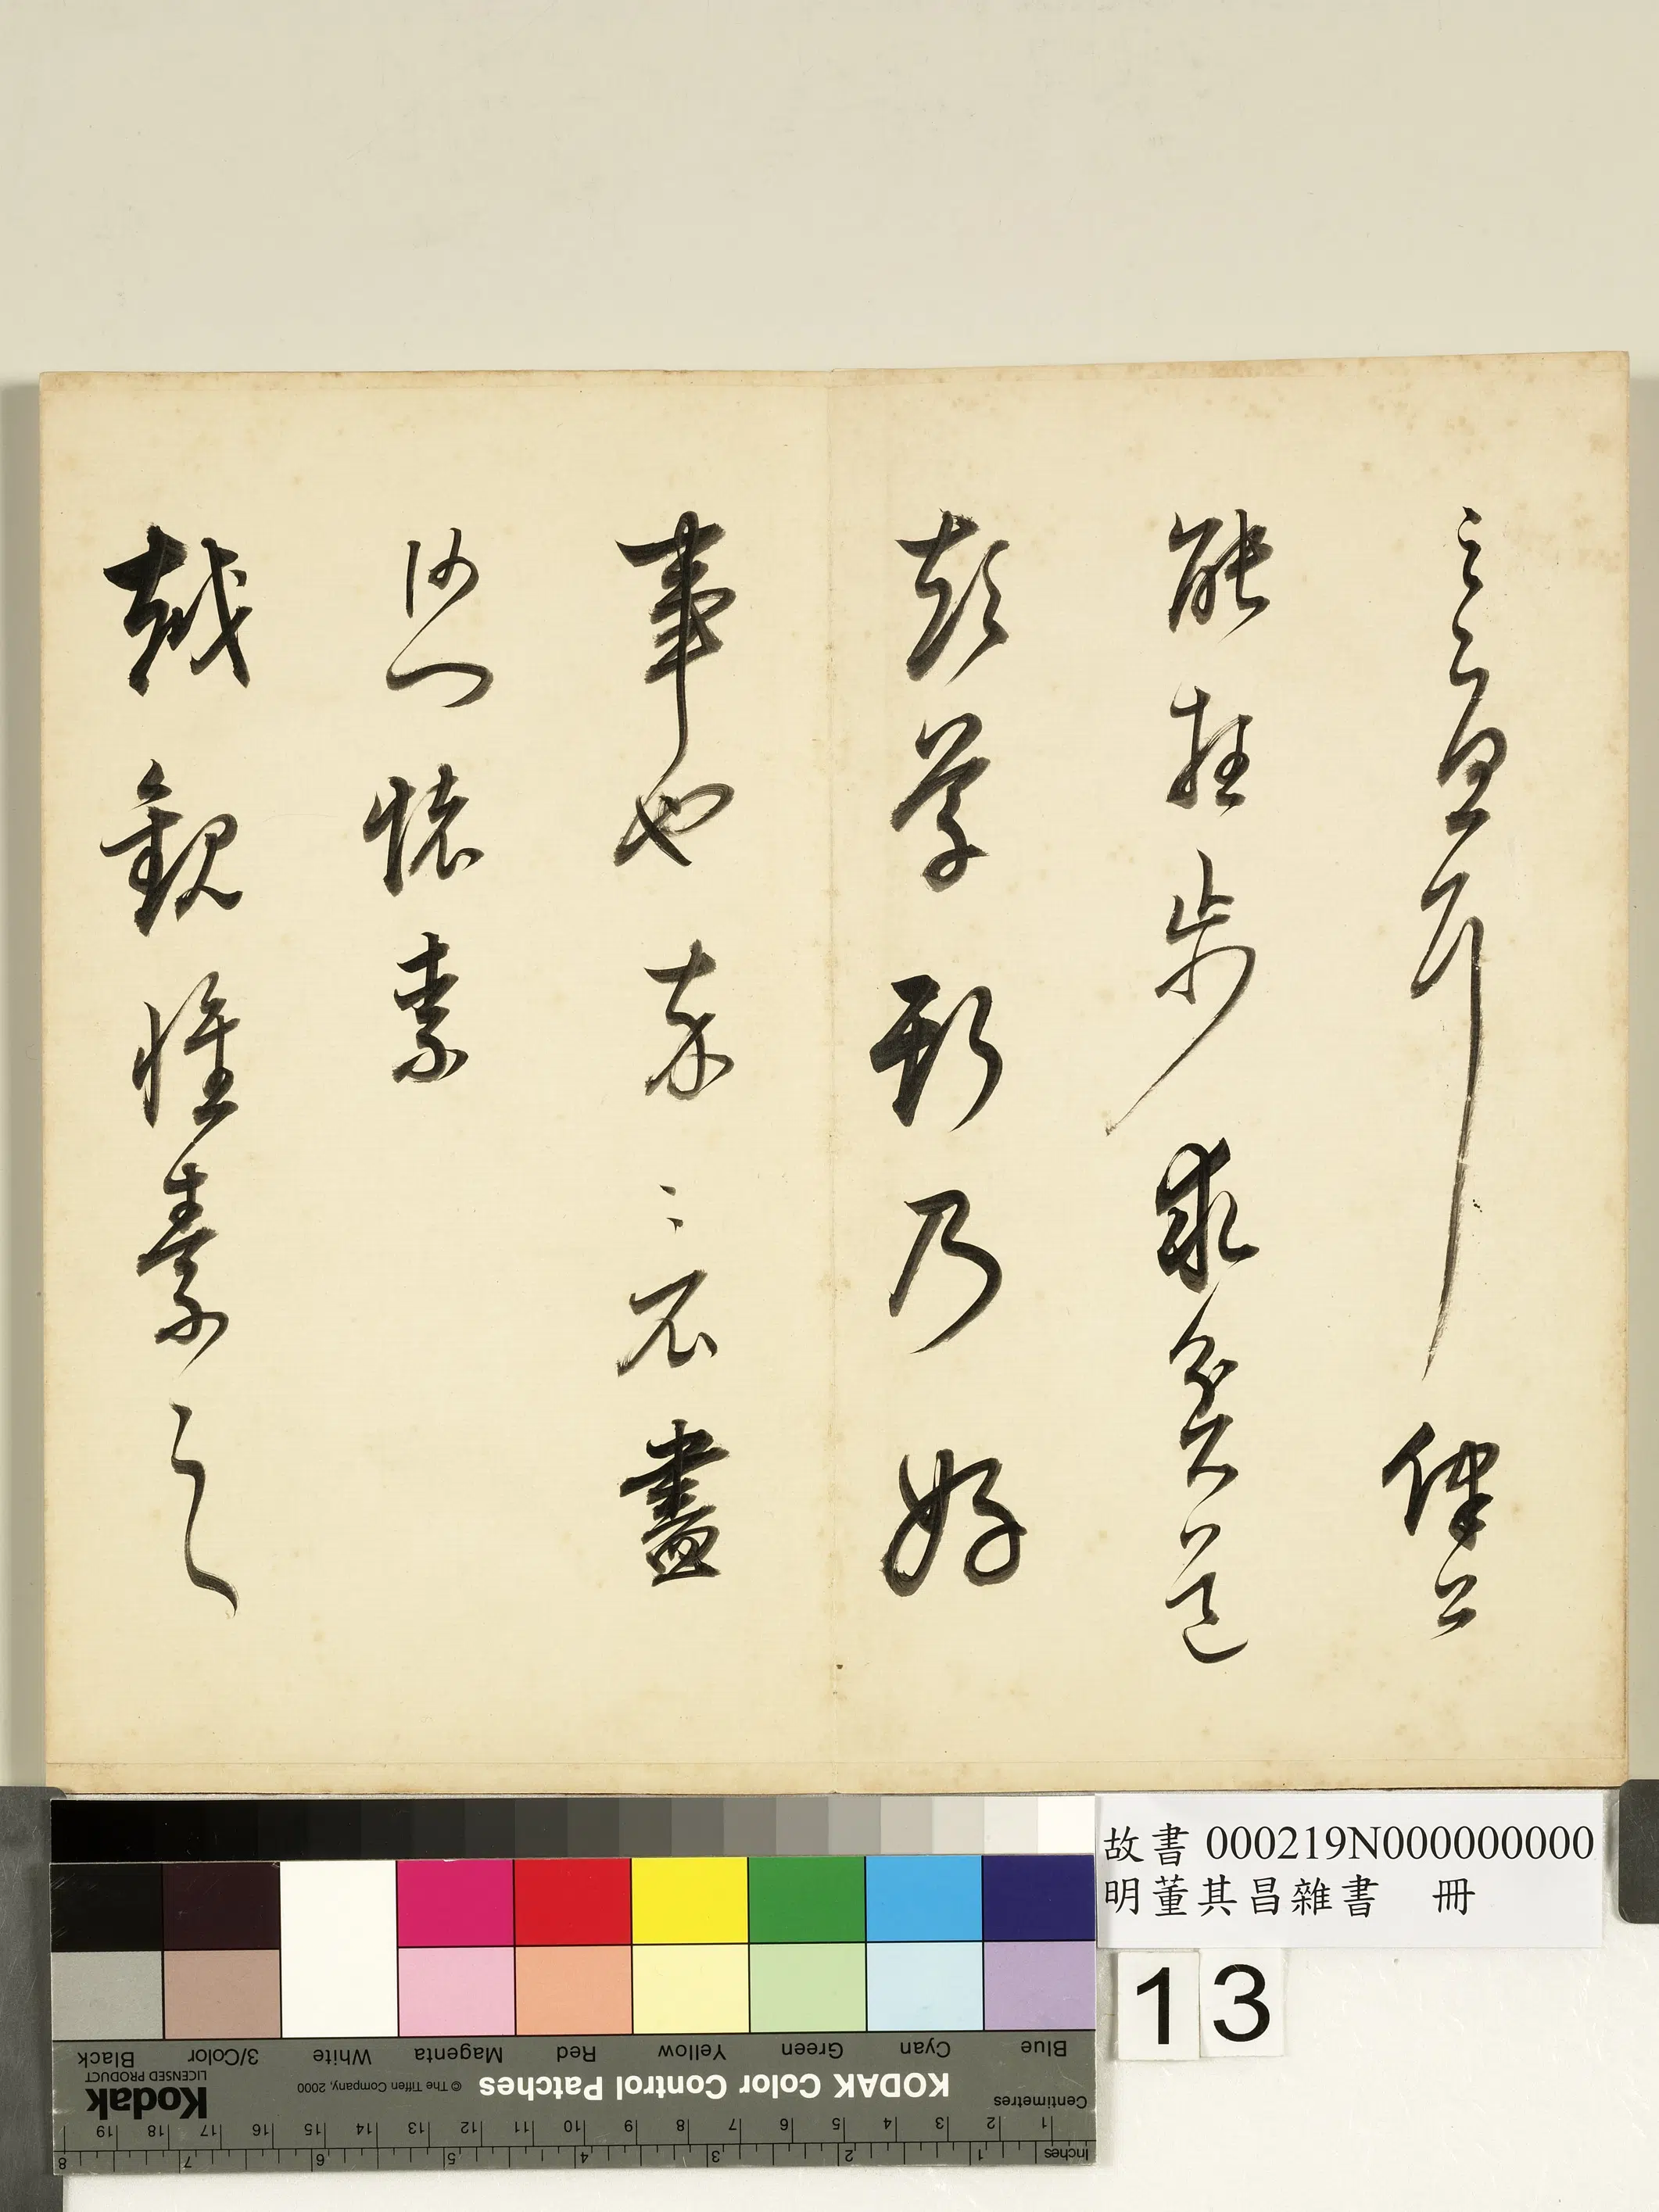 之耳律公
能枉步求貧道
顛草斯乃好
事也卒々不盡
沙門懷素
越觀懷素之
故書 000219N000000000
明董其昌雜書　冊
13
Blue Cyan Green Yellow Red Magenta White 3/Color Black
KODAK Color Control Patches © The Tiffen Company, 2000 Kodak LICENSED PRODUCT
Centimetres
1 2 3 4 5 6 7 8 9 10 11 12 13 14 15 16 17 18 19
Inches 1 2 3 4 5 6 7 8